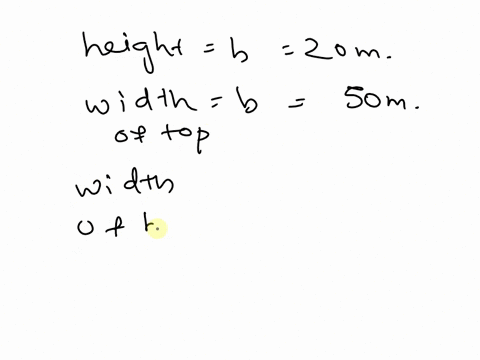 height = h = 20m.
width = b = 50m.
of top
width
of b